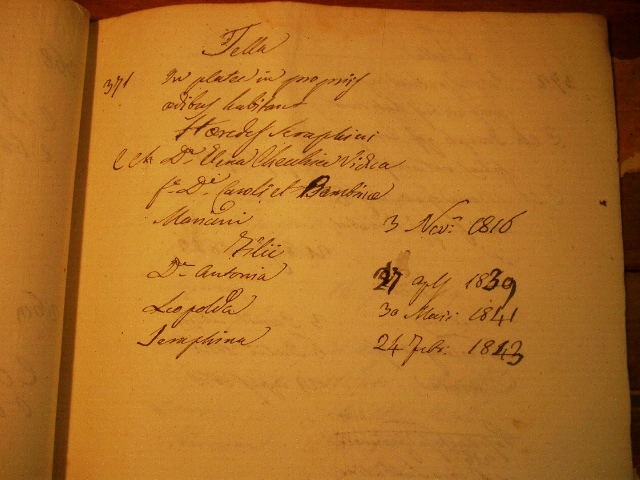 Tella
371 In platea in propriis
ædibus habitant
Hæredes Seraphini
D.a Elena Vidua
f.a D.i Caroli et Bambinæ
Mancini 3 Nov.s 1816
Filii
D.a Antonia 1839
Leopolda 30 Maii 1841
Seraphina 24 Febr. 1843